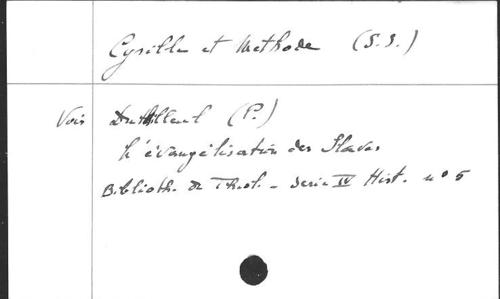 Cyrille et Methode (S.S.)
Voir Duthilleul (P.)
L'évangélisation des Slaves
Biblioth. de Théol. - Serie IV Hist. nº 5